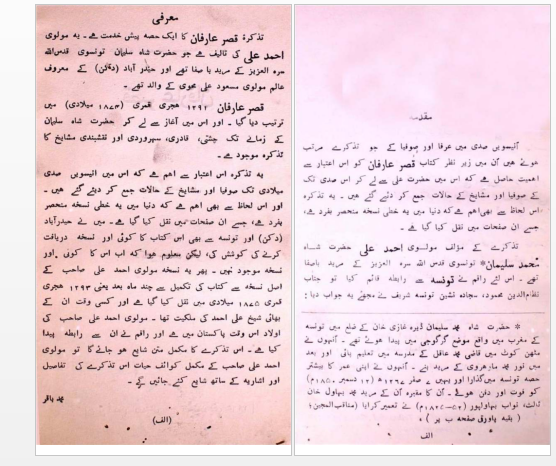 معرفی
تذکرہ قصر عارفان کا ایک حصہ پیش خدمت ہے ۔ یہ مولوی
احمد علی کی تالیف ہے جو حضرت شاہ سلیمان تونسوی قدس اللہ
سرہ العزیز کے مرید با صفا تھے اور حیدر آباد (دکن) کے معروف
عالم مولوی مسعود علی محوی کے والد تھے ۔
قصر عارفان ۱۲۹۱ ہجری قمری (۱۸۷۳ میلادی) میں
ترتیب دیا گیا ۔ اور اس میں آغاز سے لے کر حضرت شاہ سلیمان
کے زمانے تک چشتی، قادری، سہروردی اور نقشبندی مشایخ کا
تذکرہ موجود ہے ۔
یہ تذکرہ اس اعتبار سے اہم ہے کہ اس میں انیسویں صدی
میلادی تک صوفیا اور مشایخ کے حالات جمع کر دیئے گئے ہیں ۔
اور اس لحاظ سے بھی اہم ہے کہ دنیا میں یہ خطی نسخہ منحصر
بفرد ہے، جسے ان صفحات میں نقل کیا گیا ہے ۔ میں نے حیدرآباد
(دکن) اور تونسہ سے بھی اس کتاب کا کوئی اور نسخہ دریافت
کرنے کی کوشش کی، لیکن معلوم ہوا کہ اب اس کا کوئی اور
نسخہ موجود نہیں ۔ پھر یہ نسخہ مولوی احمد علی صاحب کے
اصل نسخہ سے کتاب کی تکمیل سے چند ماہ بعد یعنی ۱۲۹۳ ہجری
قمری ۱۸۷۵ میلادی میں نقل کیا گیا ہے اور کسی وقت ان کے
بھائی شیخ علی احمد کی ملکیت تھا ۔ مولوی احمد علی صاحب کی
اولاد اس وقت پاکستان میں ہے اور راقم نے ان سے رابطہ پیدا
کیا ہے ۔ اس تذکرے کا مکمل متن شایع ہو جانے گا تو مولوی
احمد علی صاحب کے مکمل کوائف حیات اس تذکرے کی تفاصیل
اور اشاریہ کے ساتھ شایع کئے جائیں گے ۔
محمد باقر
(الف)
مقدمہ
انیسویں صدی میں عرفا اور صوفیا کے جو تذکرے مرتب
ہوئے ہیں ان میں زیر نظر کتاب قصر عارفان کو اس اعتبار سے
اہمیت حاصل ہے کہ اس میں حضرت علی سے لے کر اس صدی تک
کے صوفیا اور مشایخ کے حالات جمع کر دئے گئے ہیں ۔ یہ تذکرہ
اس لحاظ سے بھی اہم ہے کہ دنیا میں یہ خطی نسخہ منحصر بفرد ہے،
جسے ان صفحات میں نقل کیا گیا ہے ۔
تذکرے کے مؤلف مولوی احمد علی حضرت شاہ
محمد سلیمان* تونسوی قدس اللہ سرہ العزیز کے مرید باصفا
تھے ۔ اس لئے راقم نے تونسہ سے رابطہ قائم کیا تو جناب
نظام الدین محمود، سجادہ نشین تونسہ شریف نے مجھے یہ جواب دیا :
* حضرت شاہ محمد سلیمان ڈیرہ غازی خان کے ضلع میں تونسہ
کے مغرب میں واقع موضع گرگوجی میں پیدا ہوئے تھے ۔ آنہوں نے
مٹھن کوٹ میں قاضی محمد عاقل کے مدرسہ میں تعلیم پائی اور بعد
میں نور محمد مہاروی کے مرید بنے ۔ آنہوں نے اپنی عمر کا بیشتر
حصہ تونسہ میں گذارا اور یہیں ۷ صفر ۱۲۶۷ھ (۱۲ دسمبر ۱۸۵۰م)
کو فوت اور دفن ہوئے ۔ ان کا مقبرہ آن کے مرید محمد بہاول خان
ثالث، نواب بہاولپور (۵۲-۱۸۲۵م) نے تعمیر کرایا (مناقب المحبین؛
( بقیہ پاورقی صفحہ ب پر ) ۔
الف